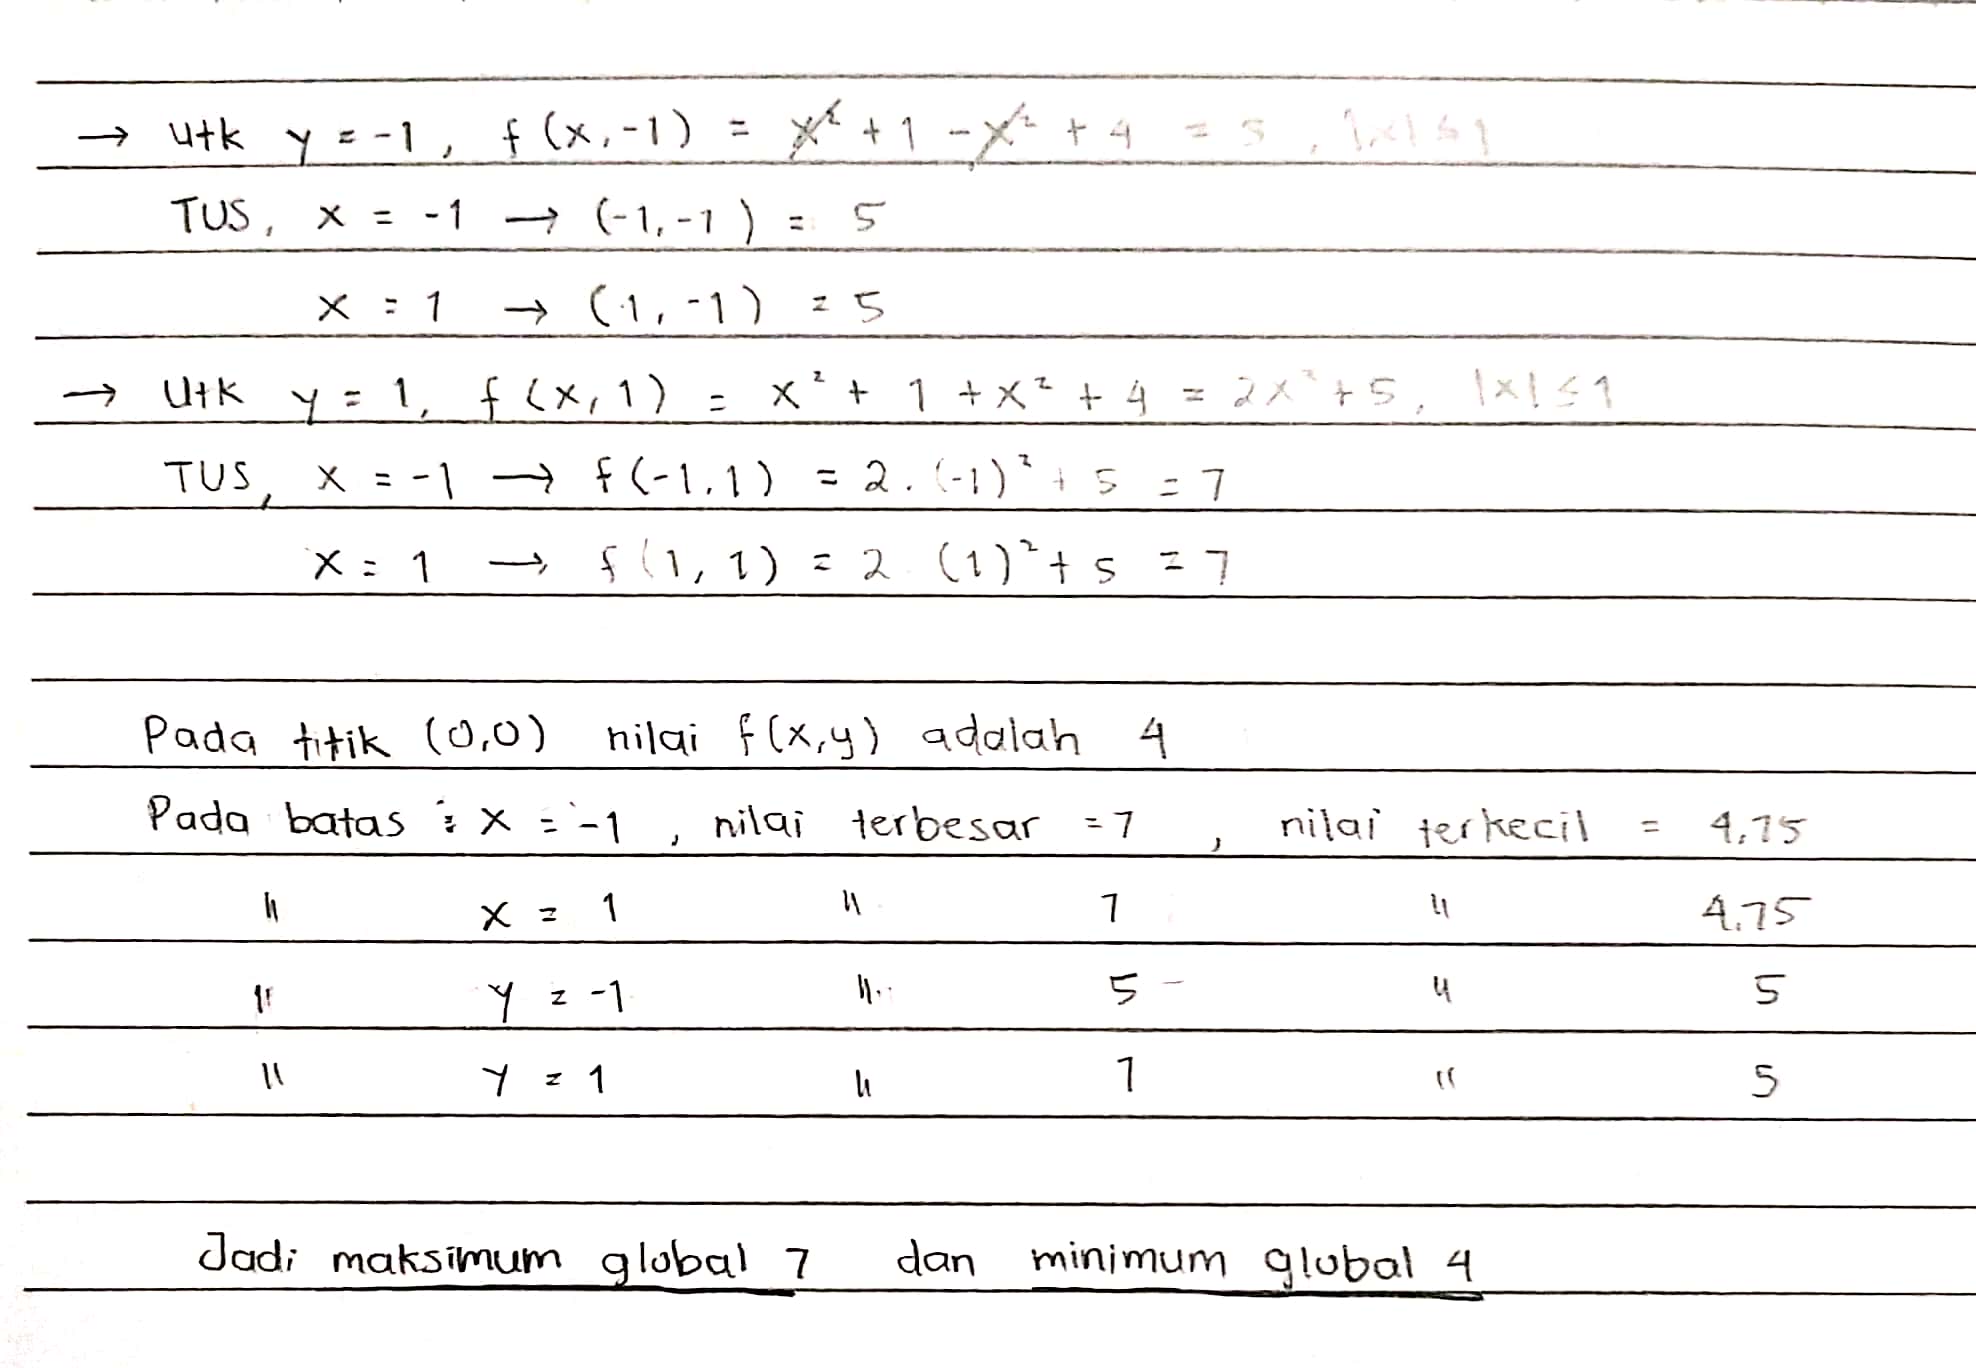 → Utk y = -1, f(x,-1) = x² + 1 - x² + 4 = 5, |x| ≤ 1
TUS, x = -1 → (-1,-1) = 5
x = 1 → (1,-1) = 5
→ Utk y = 1, f(x,1) = x² + 1 + x² + 4 = 2x² + 5, |x| ≤ 1
TUS, x = -1 → f(-1,1) = 2.(-1)² + 5 = 7
x = 1 → f(1,1) = 2 (1)² + 5 = 7
Pada titik (0,0) nilai f(x,y) adalah 4
Pada batas : x = -1, nilai terbesar = 7, nilai terkecil = 4,75
" x = 1 " 7 " 4,75
" y = -1 " 5 " 5
" y = 1 " 7 " 5
Jadi maksimum global 7 dan minimum global 4